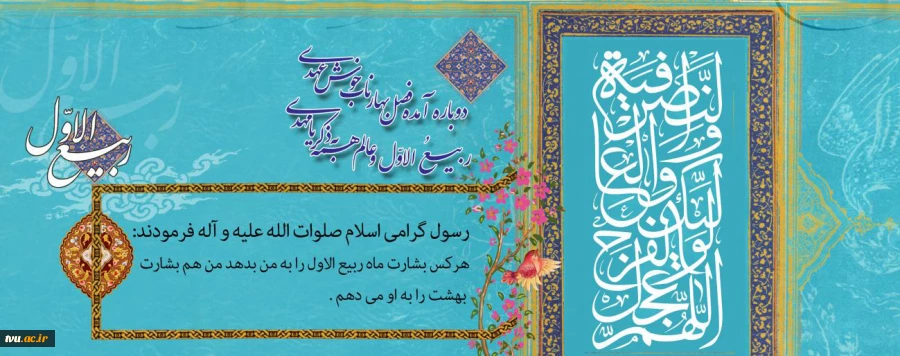 دوباره آمده فصل بهار ناب خوش عهدی
ربیعُ الاوّل و عالم همه به ذکر یا مهدی
ربیع الاوّل
رسول گرامی اسلام صلوات الله علیه و آله فرمودند:
هرکس بشارت ماه ربیع الاول را به من بدهد من هم بشارت
بهشت را به او می دهم .
اللّهمّ عجّل
لولیّک الفرج
والعافیة
والنّصر
tvu.ac.ir